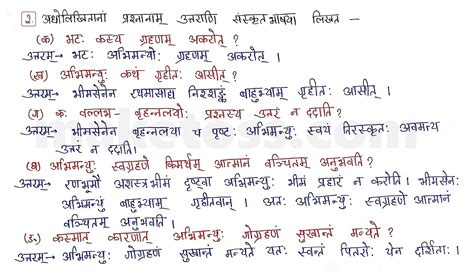 2. अधोलिखितानां प्रश्नानाम् उत्तराणि संस्कृतभाषया लिखत –
(क) भटः कस्य ग्रहणम् अकरोत् ?
उत्तरम् → भटः अभिमन्योः ग्रहणम् अकरोत् ।
(ख) अभिमन्युः कथं गृहीतः आसीत् ?
उत्तरम् → भीमसेनेन रथमासाद्य निश्शङ्कं बाहुभ्याम् गृहीतः आसीत् ।
(ग) कः वल्लभ- बृहन्नलयोः प्रश्नस्य उत्तरं न ददाति ?
उत्तरम् → भीमसेनेन बृहन्नलया च पृष्टः अभिमन्युः स्वयं तिरस्कृतः अवमन्य
उत्तरं न ददाति ।
(घ) अभिमन्युः स्वग्रहणे किमर्थम् आत्मानं वञ्चितम् अनुभवति ?
उत्तरम् → रणभूमौ अशस्त्रभीमं दृष्ट्वा अभिमन्युः भीमं प्रहारं न करोति । भीमसेनः
अभिमन्युं बाहुभ्याम् गृहीतवान् । अतः अभिमन्युः स्वग्रहणे आत्मानं
वञ्चितम् अनुभवति ।
(ङ) कस्मात् कारणात् अभिमन्युः गोग्रहणं सुखान्तं मन्यते ?
उत्तरम् → अभिमन्युः गोग्रहणं सुखान्तं मन्यते यतः स्वन्तं पितरो येन दर्शिताः ।